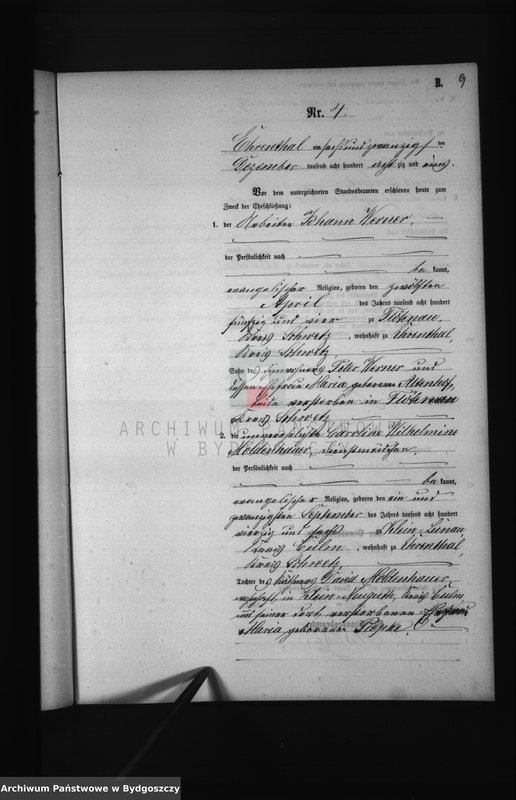 B. 9
Nr. 4.
Ehrenthal am sechs und zwanzig ten
Dezember tausend acht hundert acht zig und eins.
Vor dem unterzeichneten Standesbeamten erschienen heute zum
Zweck der Eheschließung:
1. der Arbeiter Johann Werner,
der Persönlichkeit nach
be kannt,
evangelischer Religion, geboren den zwölften
April des Jahres tausend acht hundert
fünfzig und vier zu Flötenau,
Kreis Schwetz, wohnhaft zu Ehrenthal,
Kreis Schwetz
Sohn des Einwohners Peter Werner und
dessen Ehefrau Maria geborenen
beide verstorben in Flötenau
Kreis Schwetz
2. die unverehelichte Caroline Wilhelmine
Moldenhauer, Dienstmädchen,
der Persönlichkeit nach
be kannt,
evangelischer Religion, geboren den ein und
zwanzigsten September des Jahres tausend acht hundert
vierzig und sechs zu Klein Lunau
Kreis Culm, wohnhaft zu Ehrenthal,
Kreis Schwetz
Tochter des David Moldenhauer,
wohnhaft in Klein Neuguth, Kreis Culm
und seiner dort verstorbenen Ehefrau
Maria geborenen
ARCHIWUM PAŃSTWOWE
W BYDGOSZCZY
Archiwum Państwowe w Bydgoszczy